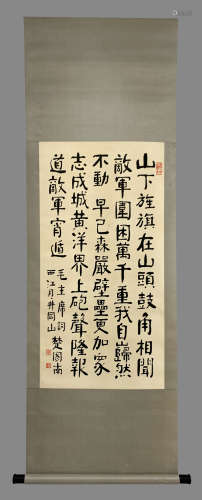 山下旌旗在山頭鼓角相聞
敵軍圍困萬千重我自巋然
不動 早已森嚴壁壘更加眾
志成城黃洋界上砲聲隆報
道敵軍宵遁 毛主席詞
西江月井岡山 楚圖南